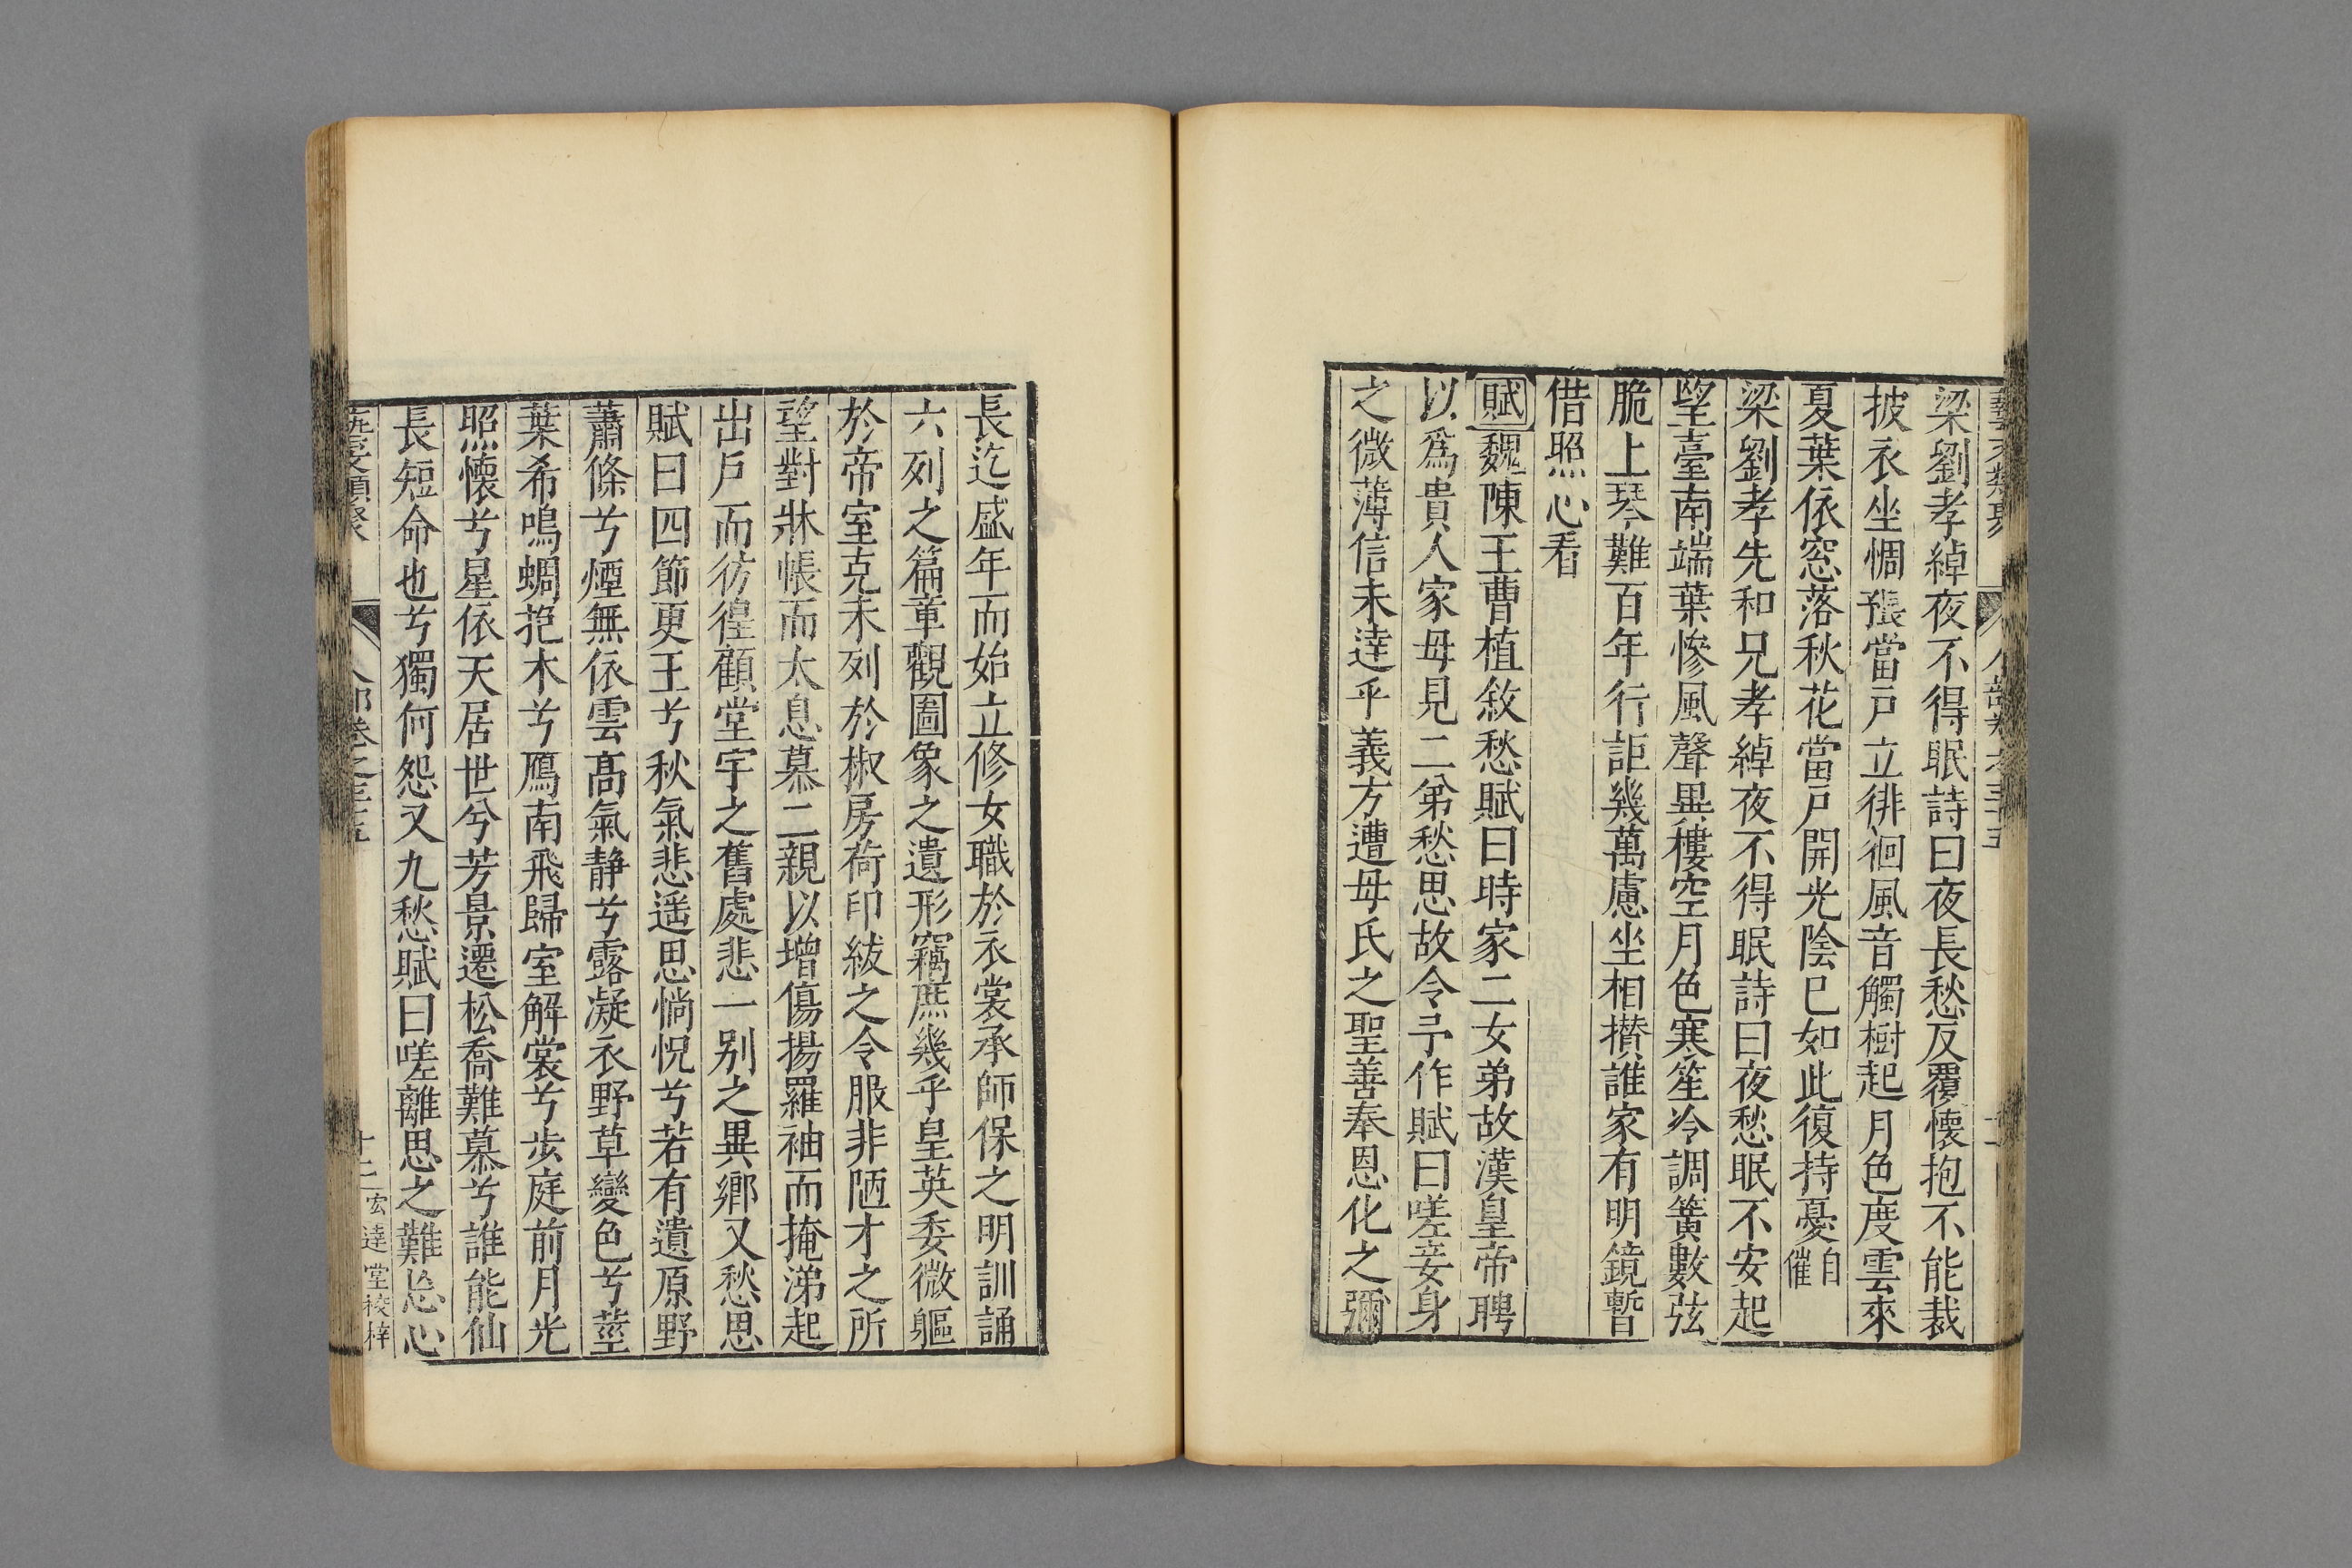 梁劉孝綽夜不得眠詩曰夜長愁反覆懷抱不能裁
披衣坐惆悵當戸立徘徊風音觸樹起月色度雲來
夏葉依窓落秋花當戸開光陰已如此復持憂自催
梁劉孝先和兄孝綽夜不得眠詩曰夜愁眠不安起
望臺南端葉慘風聲異樓空月色寒笙冷調簧數弦
脆上琴難百年行詎幾萬慮坐相攅誰家有明鏡暫
借照心看
賦魏陳王曹植敘愁賦曰時家二女弟故漢皇帝聘
以爲貴人家母見二弟愁思故令予作賦曰嗟妾身
之微薄信未達乎義方遭母氏之聖善奉恩化之彌
長迄盛年而始立修女職於衣裳承師保之明訓誦
六列之篇章觀圖象之遺形竊庶幾乎皇英委微軀
於帝室克未列於椒房荷印紱之令服非陋才之所
望對牀帳而太息慕二親以增傷揚羅袖而掩涕起
出戸而彷徨顧堂宇之舊處悲一别之異鄉又愁思
賦曰四節更王兮秋氣悲遥思惝怳兮若有遺原野
蕭條兮煙無依雲髙氣静兮露凝衣野草變色兮莖
葉希鳴蜩抱木兮鴈南飛歸室解裳兮步庭前月光
照懷兮星依天居世兮芳景遷松喬難慕兮誰能仙
長短命也兮獨何怨又九愁賦曰嗟離思之難忘心
藝文類聚 人部卷之三十五 十二 宏達堂校梓